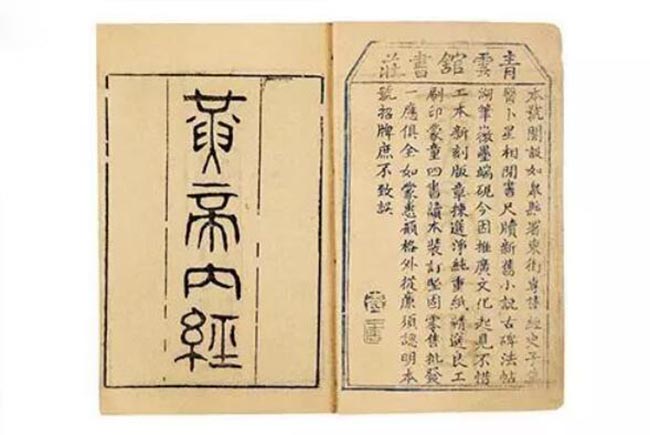 青雲舘書莊
本號開設如皋縣署東街專售經史子集
醫卜星相閒書尺牘新舊小説古碑法帖
湖筆徽墨端硯今因推廣文化起見不惜
工本新刻版章揀選淨純重紙精選良工
刷印蒙童四書讀本裝訂堅固零售批發
一應俱全如蒙惠顧格外從廉須認明本
號招牌庶不致誤
黃帝內經